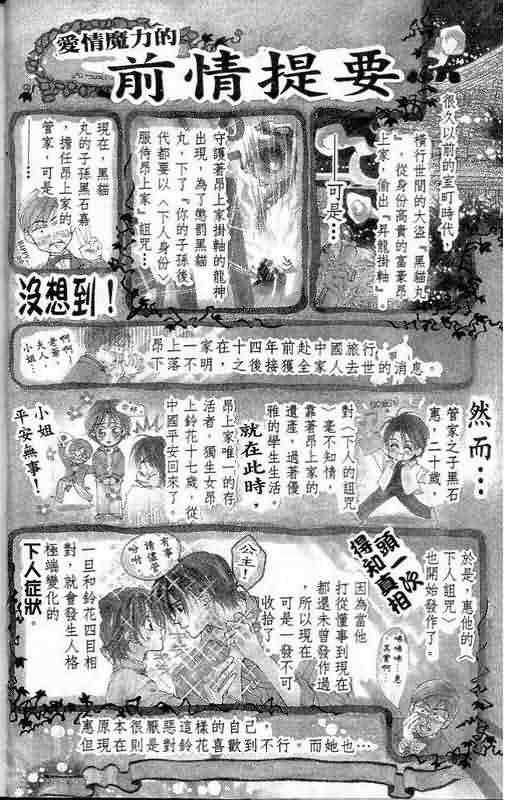 愛情魔力的
前情提要
很久以前的室町時代，
橫行世間的大盜『黑貓丸
』，從身份高貴的富豪昂
上家，偷出『昇龍掛軸』。
——可是…
守護著昂上家掛軸的龍神
出現，為了懲罰黑貓
丸，下了『你的子孫後
代都要以〈下人身份〉
服侍昂上家』詛咒…
現在，黑貓
丸的子孫黑石嘉
，擔任昂上家的
管家，可是
……
沒想到！
昂上一家在十四年前赴中國旅行
下落不明，之後接獲全家人去世的消息。
啊啊！
老爺、
夫人、
小姐…
然而…
管家之子黑石
惠，二十歲，
對〈下人的詛咒
〉毫不知情，
靠著昂上家的
遺產，過著優
雅的學生生活。
就在此時，
昂上家唯一的存
活者，獨生女昂
上鈴花十七歲，從
中國平安回來了。
你好。
小姐
平安無事！
於是，惠他的〈
下人詛咒〉
也開始發作了。
頭一次
得知真相
咪咪咪…惠
其實啊…
因為當他
打從懂事到現在
都還未曾發作過
，所以現在
可是一發不可
收拾了。
公主！
有事
請儘管
吩咐
一旦和鈴花四目相
對，就會發生人格
極端變化的
下人症狀。
惠原本很厭惡這樣的自己，
但現在則是對鈴花喜歡到不行。而她也…